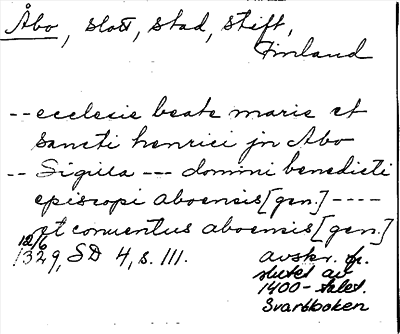 Åbo, slott, stad, stift,
Finland
-- ecclesie beate marie et
sancti henrici jn Abo
-- Sigilla --- domini benedicti
episcopi aboensis [gen.] ----
et conuentus aboensis [gen.]
12/6
1329, SD 4, s. 111.
avskr. fr.
slutet av
1400-talet.
Svartboken